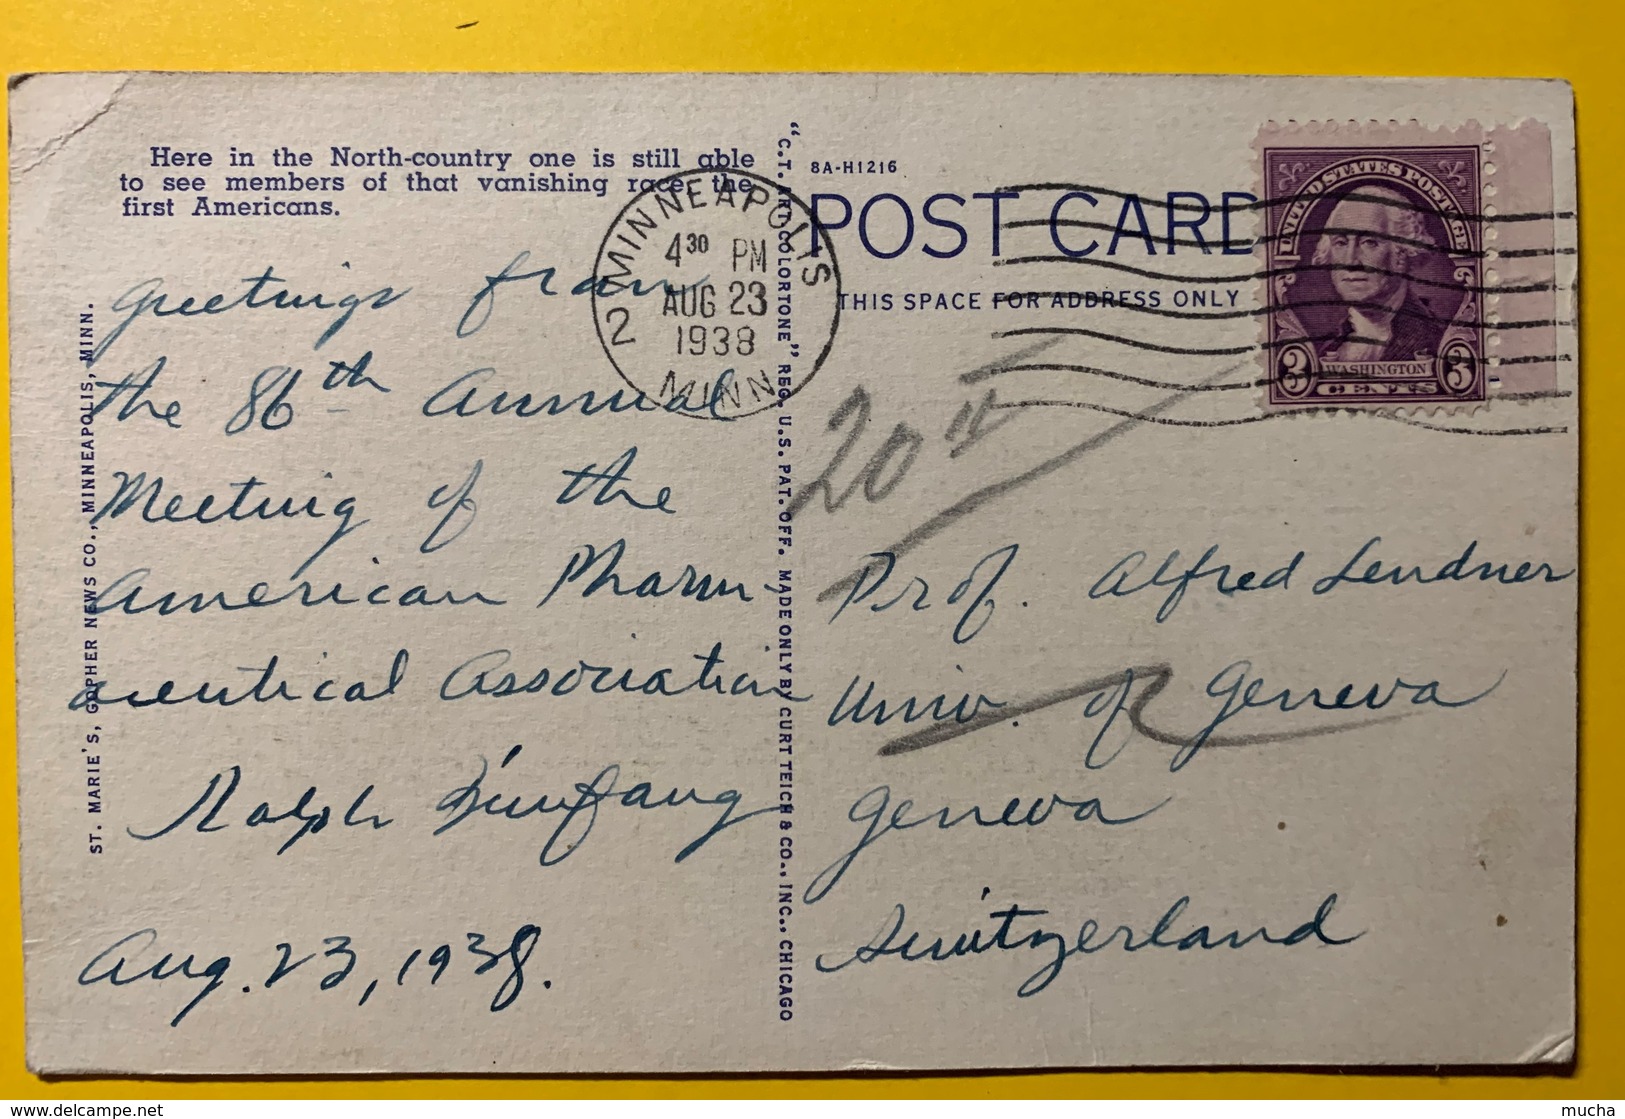 Here in the North-country one is still able
to see members of that vanishing race, the
first Americans.
Greetings from
the 86th Annual
Meeting of the
American Pharm-
aceutical Association
Ralph Bienfang
Aug. 23, 1938.
ST. MARIE'S, GOPHER NEWS CO., MINNEAPOLIS, MINN.
2 MINNEAPOLIS
4 30 PM
AUG 23
1938
MINN
"C.T. ART-COLORTONE" REG. U.S. PAT. OFF. MADE ONLY BY CURT TEICH & CO., INC., CHICAGO
8A-H1216
POST CARD
THIS SPACE FOR ADDRESS ONLY
UNITED STATES POSTAGE
3 WASHINGTON 3
CENTS
20
Prof. Alfred Lendner
Univ. of Geneva
Geneva
Switzerland
delcampe.net
mucha